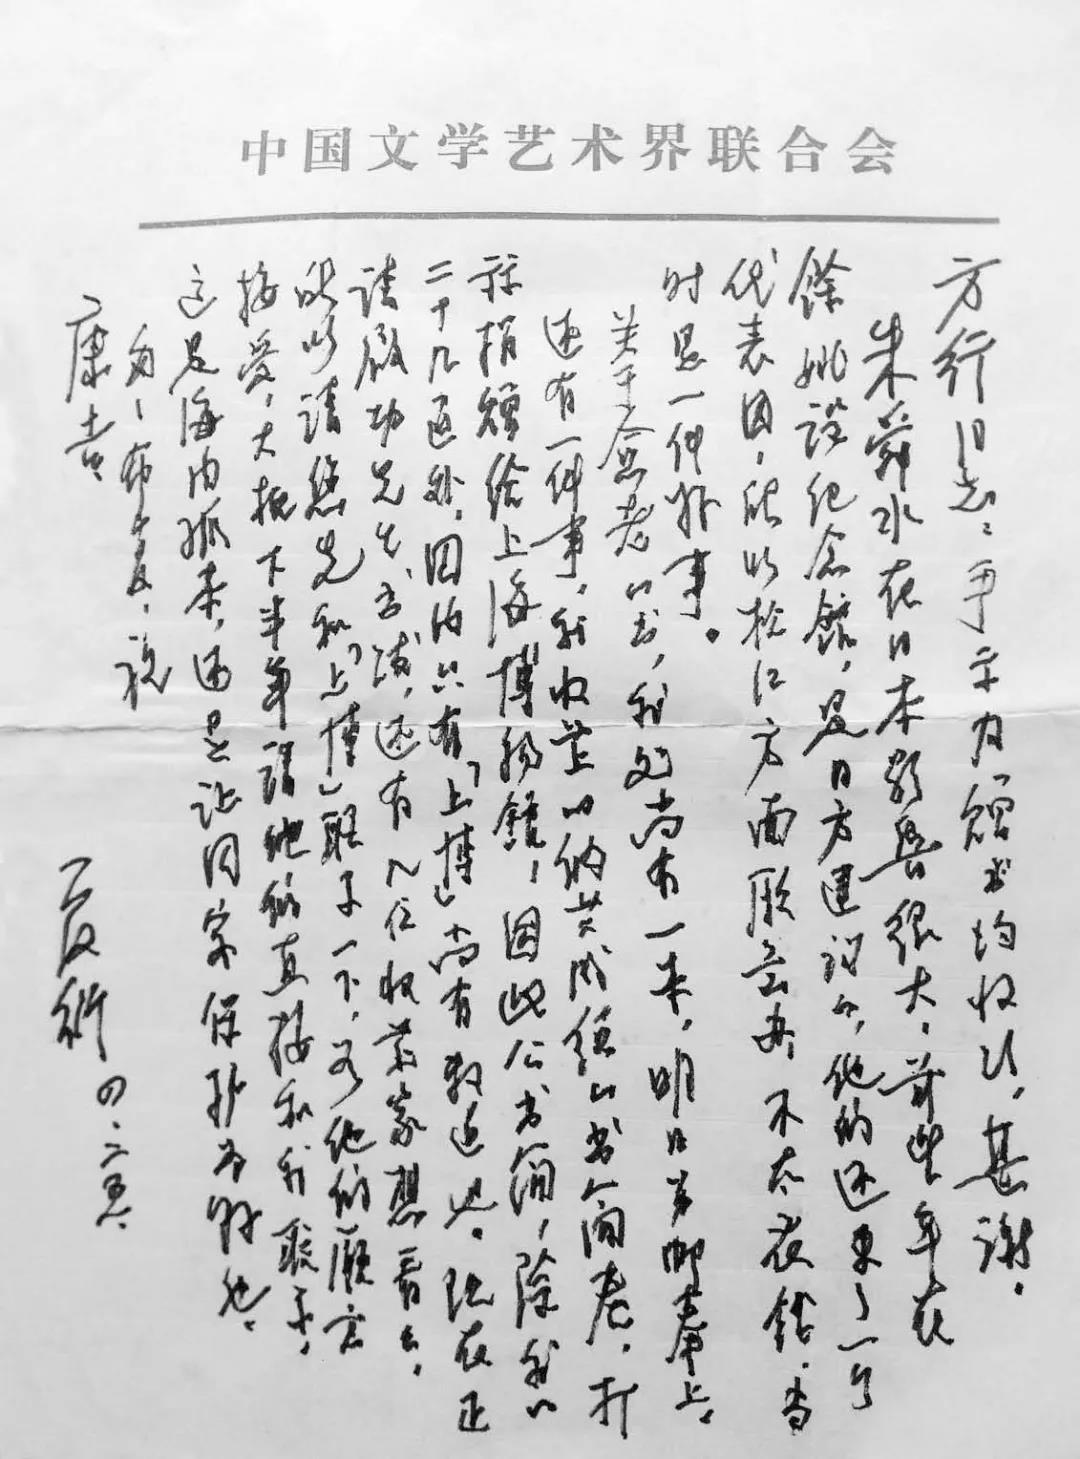 中国文学艺术界联合会
方行同志：手示及赠书均收到，甚谢。
朱舜水在日本影响很大，前些年在
馀姚设纪念馆，是日方建议的，他们还来了一个
代表团，所以松江方面愿意办，不太花钱，当
时是一件好事。
关于愈老的书，我处尚有一本，明日当邮奉上。
还有一件事，我收藏的纳兰成德的书简卷，打
算捐赠给上海博物馆，因此公书简，除我的
二十几通外，国内只有「上博」尚有数通也。现在正
请启功先生书跋，还有几位收藏家想看看，
所以请您先和「上博」联系一下，如他们愿意
接受，大概下半年请他们直接和我联系，
这是海内孤本，还是让国家保护为好也。
匆匆布复，祝
康吉
夏衍 四、二五、